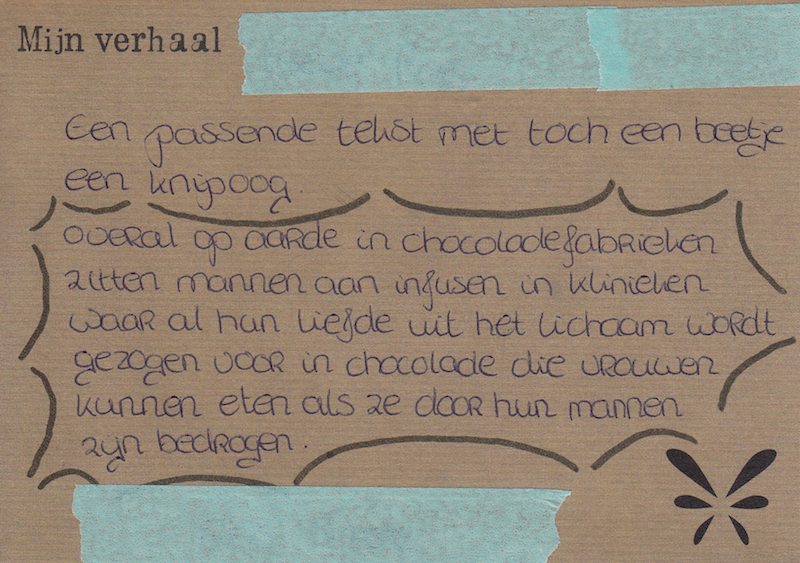 Mijn verhaal
Een passende tekst met toch een beetje
een knipoog.
overal op aarde in chocoladefabrieken
zitten mannen aan infusen in klinieken
waar al hun liefde uit het lichaam wordt
gezogen voor in chocolade die vrouwen
kunnen eten als ze door hun mannen
zijn bedrogen.